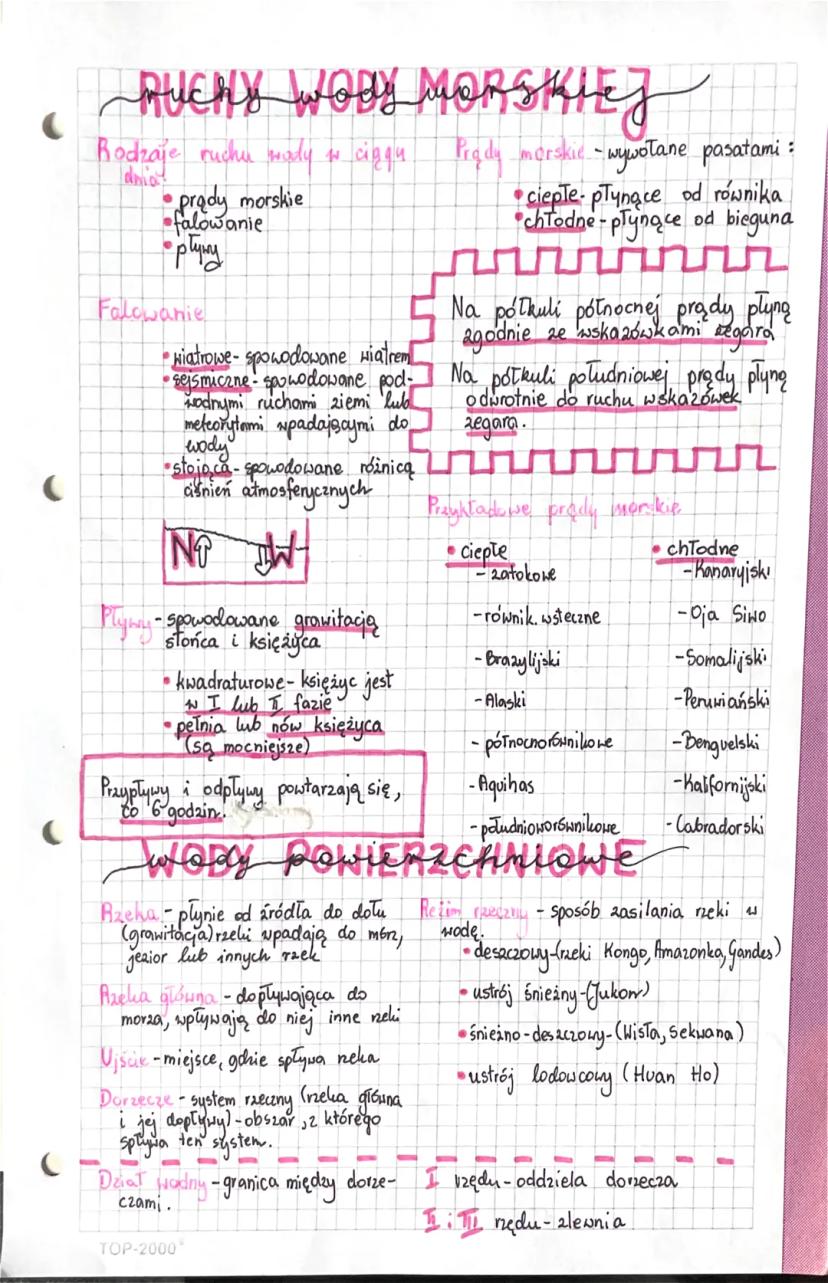 RUCHY WODY MORSKIEJ
ruchy wody morskiej
Rodzaje ruchu wody w ciągu
dnia:
• prądy morskie
• falowanie
• pływy
Prądy morskie - wywołane pasatami:
• ciepłe - płynące od równika
• chłodne - płynące od bieguna
Na półkuli północnej prądy płyną
zgodnie ze wskazówkami zegara
Na półkuli południowej prądy płyną
odwrotnie do ruchu wskazówek
zegara.
Falowanie
• wiatrowe - spowodowane wiatrem
• sejsmiczne - spowodowane pod-
wodnymi ruchami ziemi lub
meteorytami wpadającymi do
wody
• stojąca - spowodowane różnicą
ciśnień atmosferycznych
N W
Pływy - spowodowane grawitacją
słońca i księżyca
• kwadraturowe - księżyc jest
w I lub II fazie
• pełnia lub nów księżyca
(są mocniejsze)
Przypływy i odpływy powtarzają się,
co 6 godzin.
Przykładowe prądy morskie
• ciepłe
- zatokowe
- równik. wsteczne
- Brazylijski
- Alaski
- północnorównikowe
- Aquihas
- południoworównikowe
• chłodne
- Kanaryjski
- Oja Siwo
- Somalijski
- Peruwiański
- Benguelski
- Kalifornijski
- Labradorski
WODY POWIERZCHNIOWE
wody powierzchniowe
Rzeka - płynie od źródła do dołu
(grawitacja) rzeki wpadają do mórz,
jezior lub innych rzek
Rzeka główna - dopływająca do
morza, wpływają do niej inne rzeki
Ujście - miejsce, gdzie spływa rzeka
Dorzecze - system rzeczny (rzeka główna
i jej dopływy) - obszar, z którego
spływa ten system.
Reżim rzeczny - sposób zasilania rzeki w
wodę.
• deszczowy - (rzeki Kongo, Amazonka, Gandes)
• ustrój śnieżny - (Jukon)
• śnieżno - deszczowy - (Wisła, Sekwana)
• ustrój lodowcowy (Huan Ho)
Dział wodny - granica między dorze-
czami.
I rzędu - oddziela dorzecza
II i III rzędu - zlewnia
TOP-2000